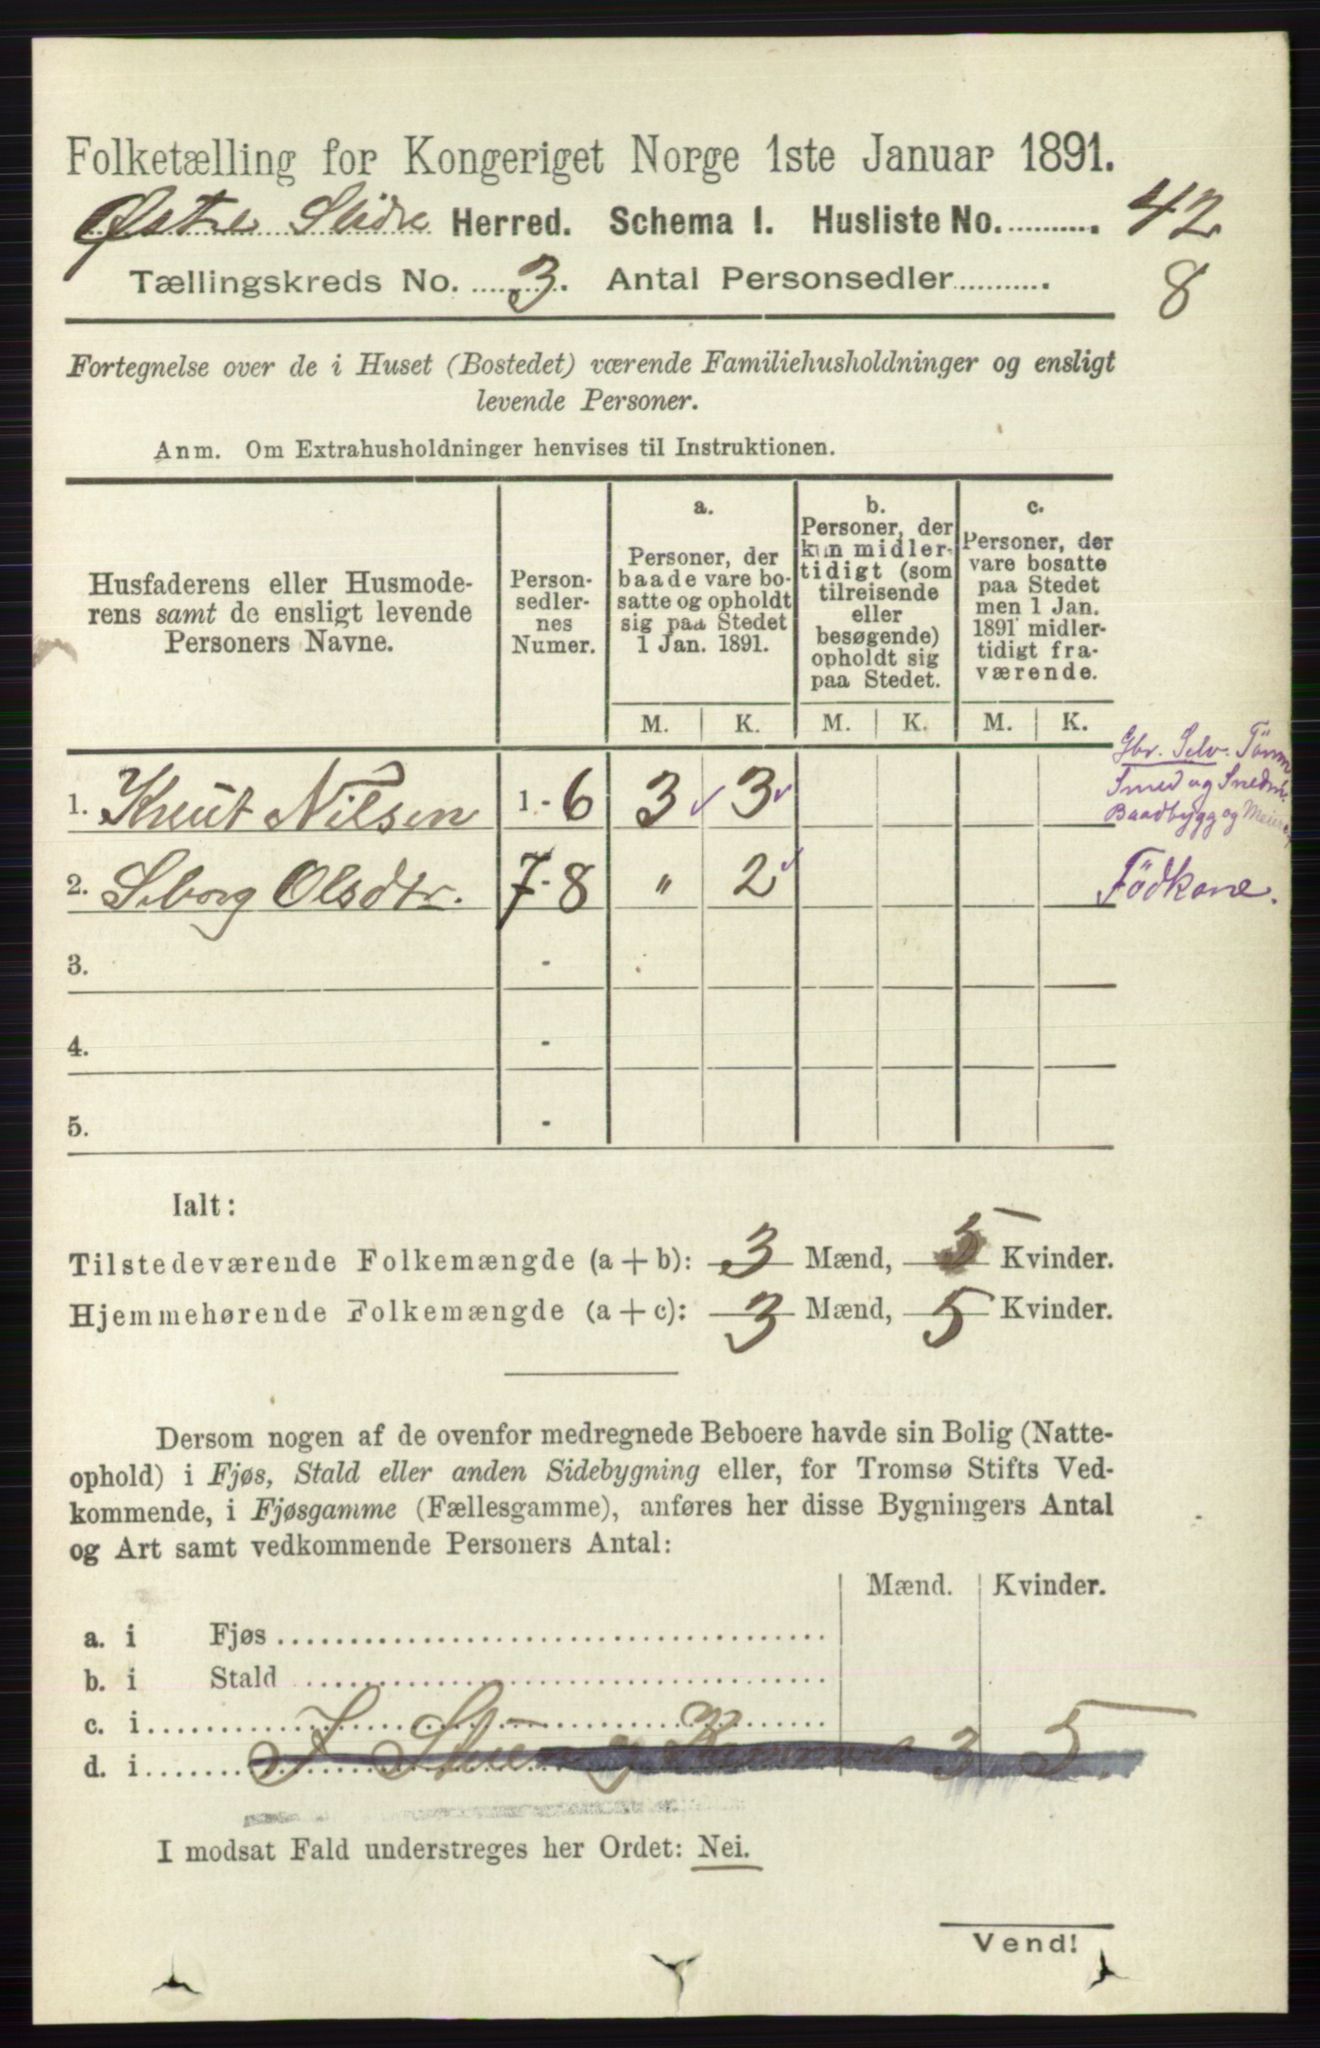 Folketælling for Kongeriget Norge 1ste Januar 1891.
Østre Slidre Herred. Schema I. Husliste No. 42
Tællingskreds No. 3. Antal Personsedler 8
Fortegnelse over de i Huset (Bostedet) værende Familiehusholdninger og ensligt
levende Personer.
Anm. Om Extrahusholdninger henvises til Instruktionen.
Husfaderens eller Husmode-
rens samt de ensligt levende
Personers Navne.
Person-
sedler-
nes
Numer.
a.
Personer, der
baade vare bo-
satte og opholdt
sig paa Stedet
1 Jan. 1891.
b.
Personer, der
kun midler-
tidigt (som
tilreisende
eller
besøgende)
opholdt sig
paa Stedet.
c.
Personer, der
vare bosatte
paa Stedet
men 1 Jan.
1891 midler-
tidigt fra-
værende.
M. K. M. K. M. K.
Gbr. Selv. Tömm
Smed og Snedm.
Baadbygg og
1. Knut Nilsen 1 - 6 3 3
2. Siborg Olsdtr. 7 - 8 " 2 Födkone.
3. -
4. -
5. -
Ialt:
Tilstedeværende Folkemængde (a + b): 3 Mænd, 5 Kvinder.
Hjemmehørende Folkemængde (a + c): 3 Mænd, 5 Kvinder.
Dersom nogen af de ovenfor medregnede Beboere havde sin Bolig (Natte-
ophold) i Fjøs, Stald eller anden Sidebygning eller, for Tromsø Stifts Ved-
kommende, i Fjøsgamme (Fællesgamme), anføres her disse Bygningers Antal
og Art samt vedkommende Personers Antal:
Mænd. Kvinder.
a. i Fjøs
b. i Stald
c. i
d. i I Stuen og 3 5.
I modsat Fald understreges her Ordet: Nei.
Vend!